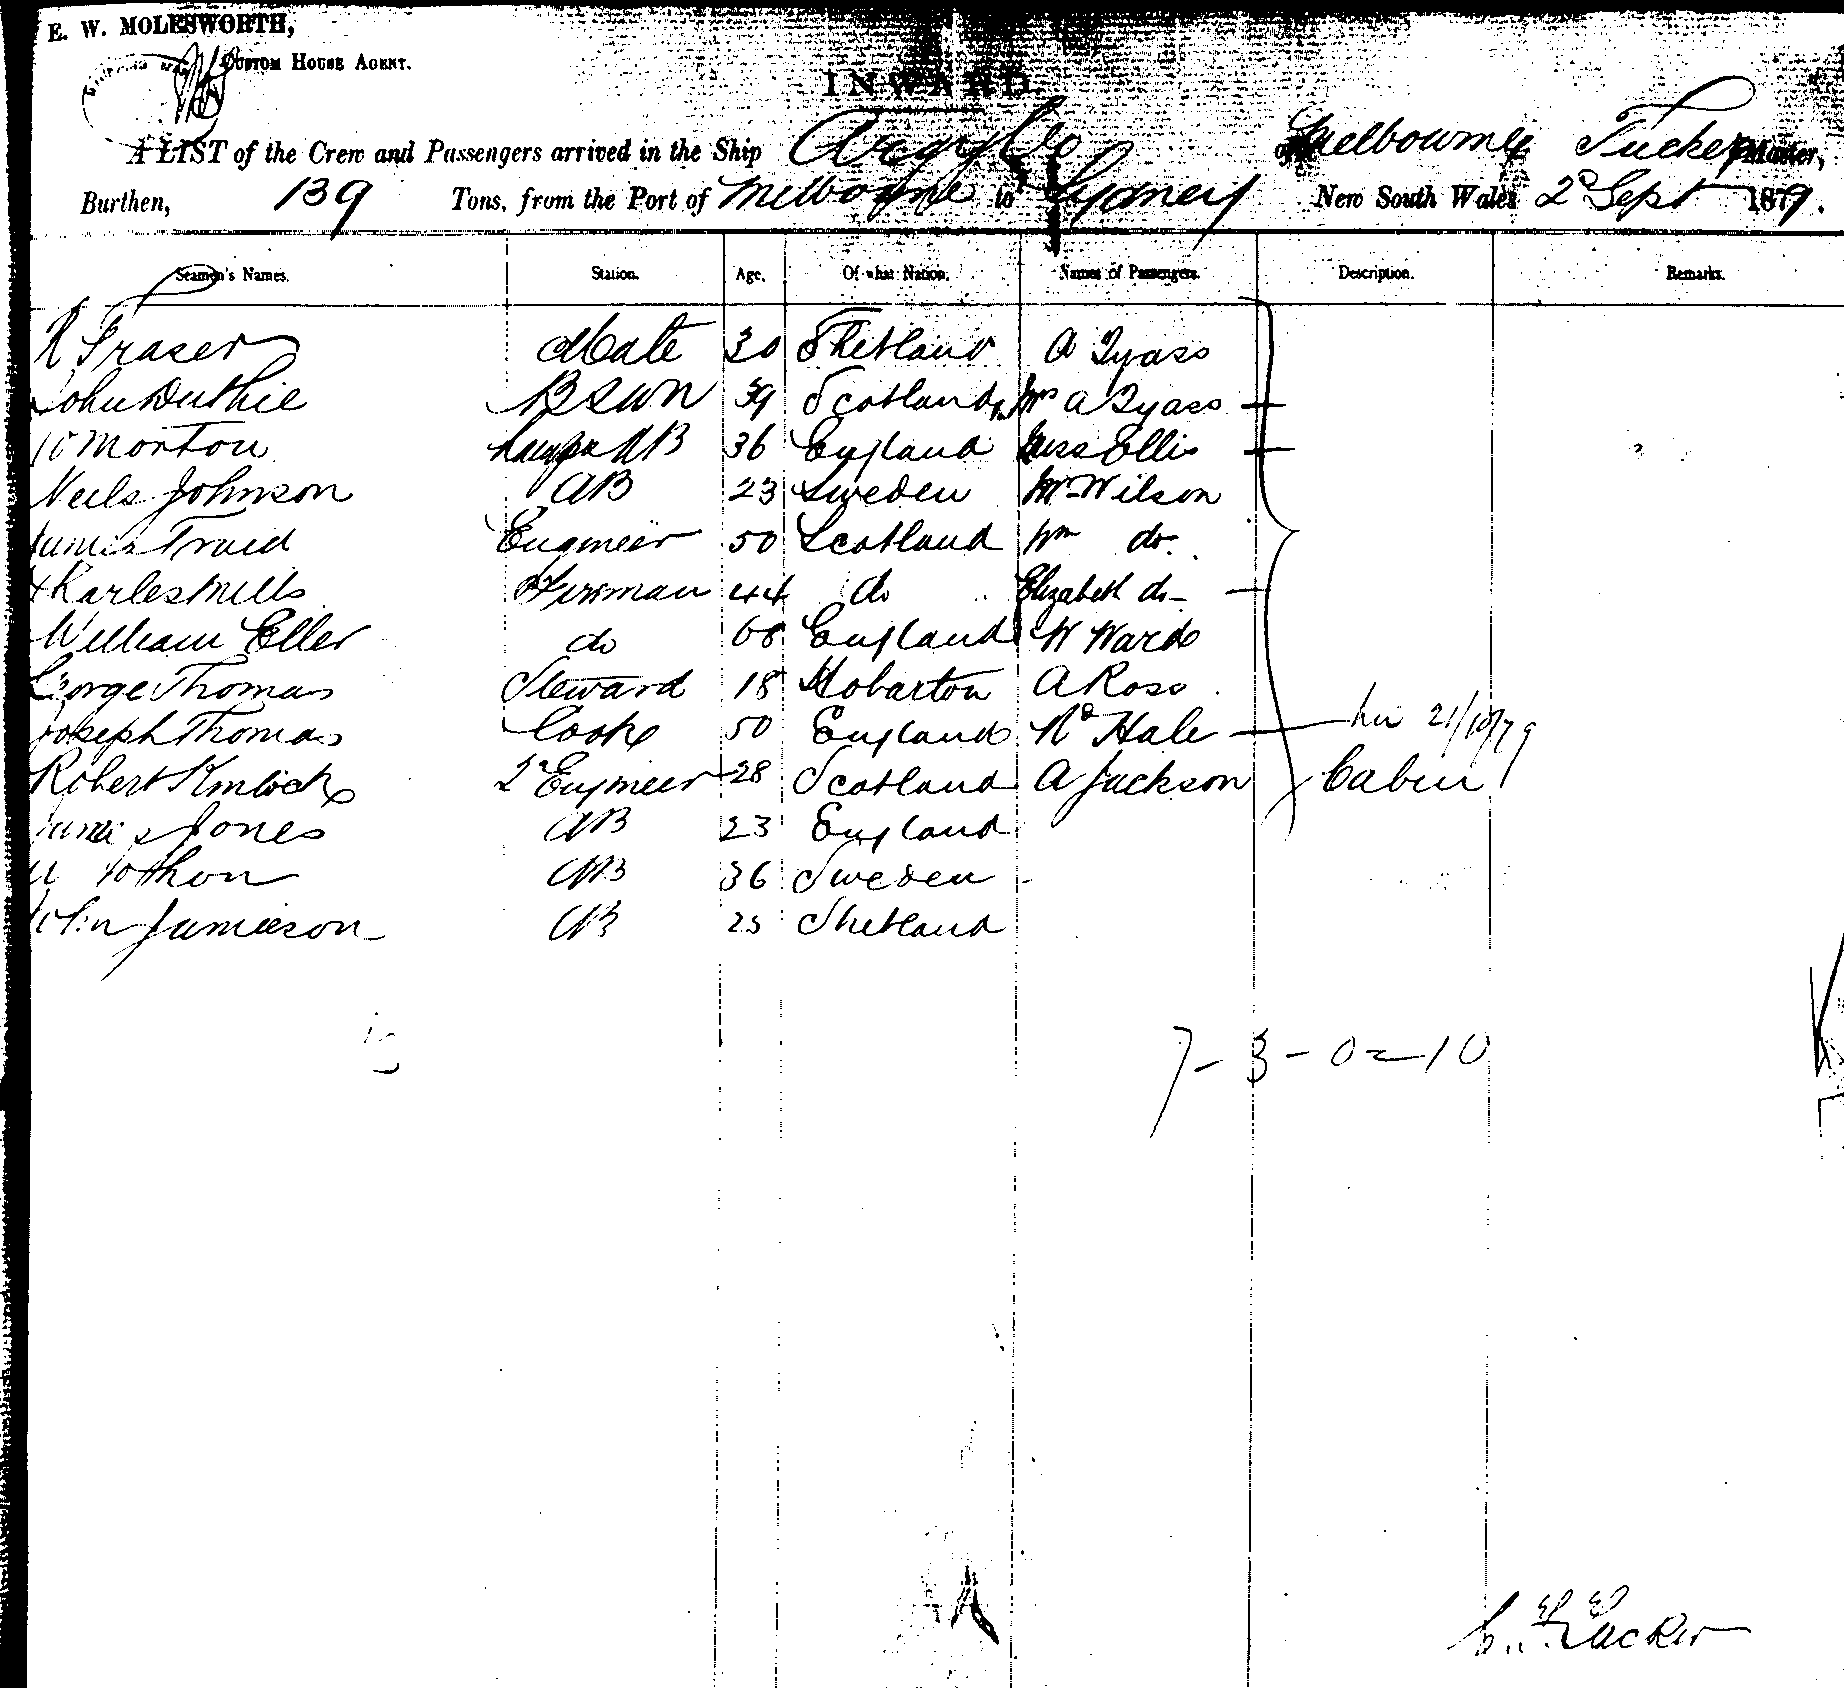 E. W. MOLESWORTH,
CUSTOM HOUSE AGENT.
INWARD.
A LIST of the Crew and Passengers arrived in the Ship Argyle of Melbourne Tucker Master,
Burthen, 139 Tons, from the Port of Melbourne to Sydney New South Wales 2d Sept 1879.
Seamen's Names. Station. Age. Of what Nation. Names of Passengers. Description. Remarks.
R Fraser Mate 30 Shetland A Tyass
John Duthie BSWN 39 Scotland Mrs A Tyass
Morton AB 36 England Miss Ellis
Neils Johnson AB 23 Sweden Mr Wilson
James Traid Engineer 50 Scotland Wm do.
Charles Mills Fireman 44 do Elizabeth do
William Eller do 68 England W Ward
George Thomas Steward 18 Hobarton A Ross
Joseph Thomas Cook 50 England Rd Hale 21/10/79
Robert Kinloch 2d Engineer 28 Scotland A Jackson Cabin
James Jones AB 23 England
AB 36 Sweden
John Jamieson AB 25 Shetland
7 - 3 - 0 = 10
Tucker